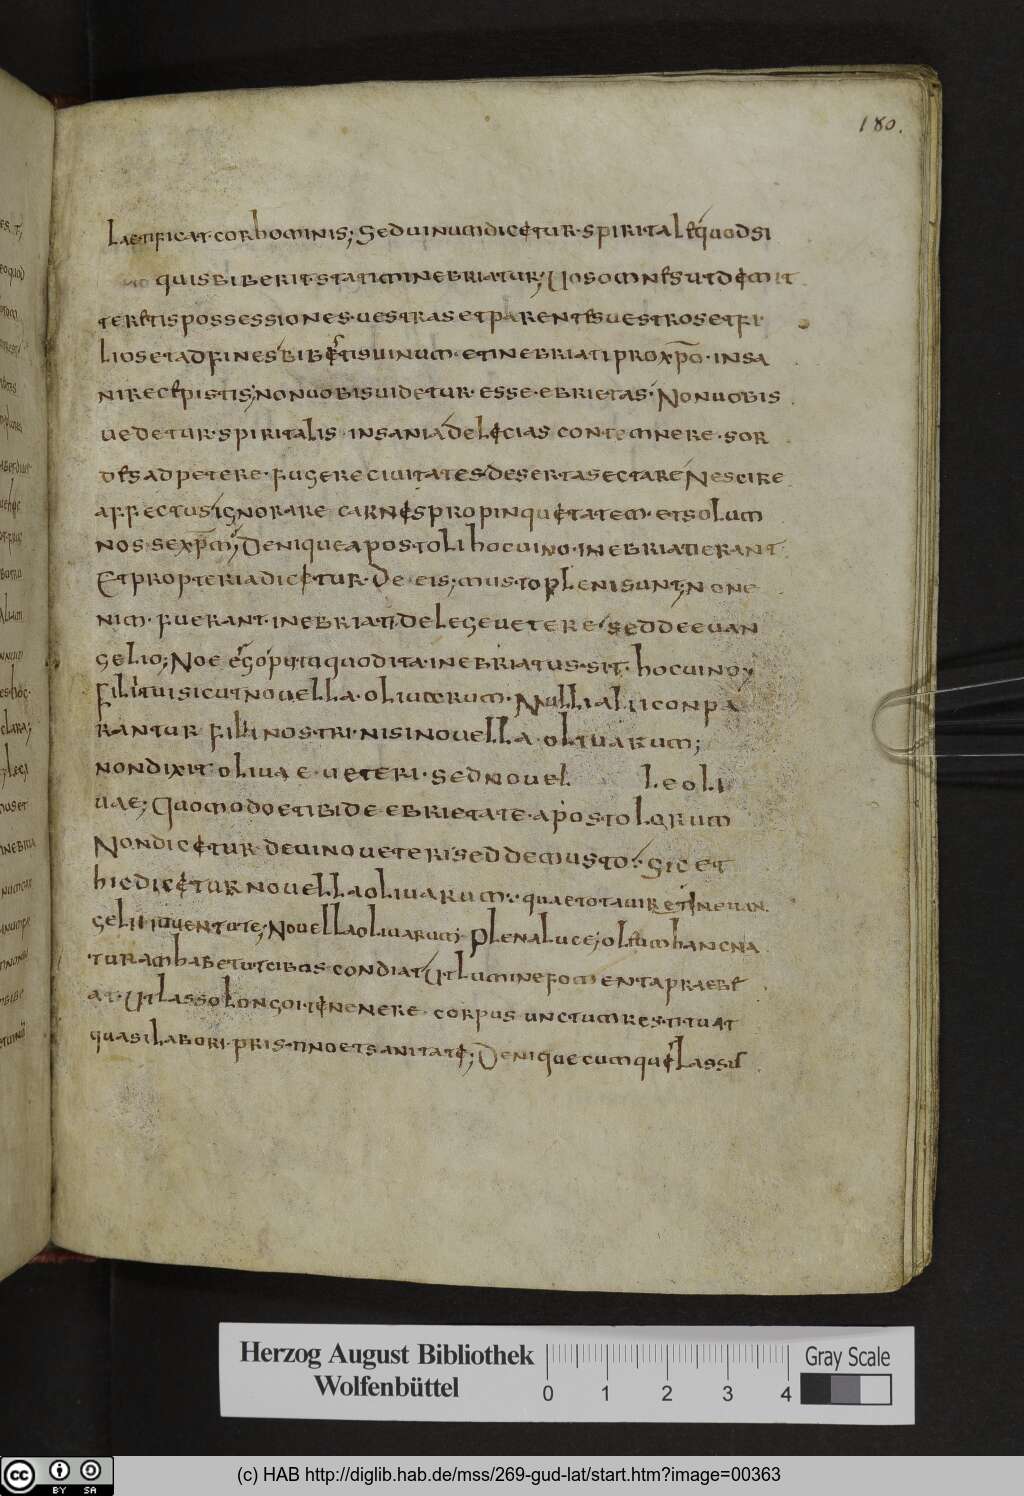 180.
laetificat cor hominis; Sed uinum dicitur spiritale quod si
quis biberit statim inebriatur; Uos omnes ut demit
teretis possessiones uestras et parentes uestros et fi
lios et ad fines bibetis uinum et inebriati pro xpo insa
nire cepistis; non uobis uidetur esse ebrietas. Non uobis
uedetur spiritalis insania delicias contemnere sor
des adpetere fugere ciuitates deserta sectare Nescire
affectus ignorare carnes propinquitatem et solum
nosse xpm; Denique apostoli hoc uino inebriati erant
Et propteria dicitur de eis; musto pleni sunt; non e
nim fuerant inebriati de lege uetere sed de euan
gelio; Noe ego puto quod ita inebriatus sit hoc uino;
filii tui sicut nouella oliuarum. Nulli alii conpa
rantur filii nostri nisi nouella oliuarum;
non dixit oliuae ueteri sed nouel leoli
uae; Quomodo et ibi de ebrietate apostolorum
Non dicitur de uino ueteri sed de musto; Sic et
hic dicitur nouella oliuarum quae tota uiret in euan
gelii iuuentute; Nouella oliuarum plena luce; oleum hanc na
turam habet ut cibos condiat Ut lumine fomenta praebe
at Ut lasso longo itinere corpus unctum restituat
quasi labori pristino et sanitati; Denique cumque lassus
Herzog August Bibliothek
Wolfenbüttel
0 1 2 3 4
Gray Scale
cc BY SA
(c) HAB http://diglib.hab.de/mss/269-gud-lat/start.htm?image=00363